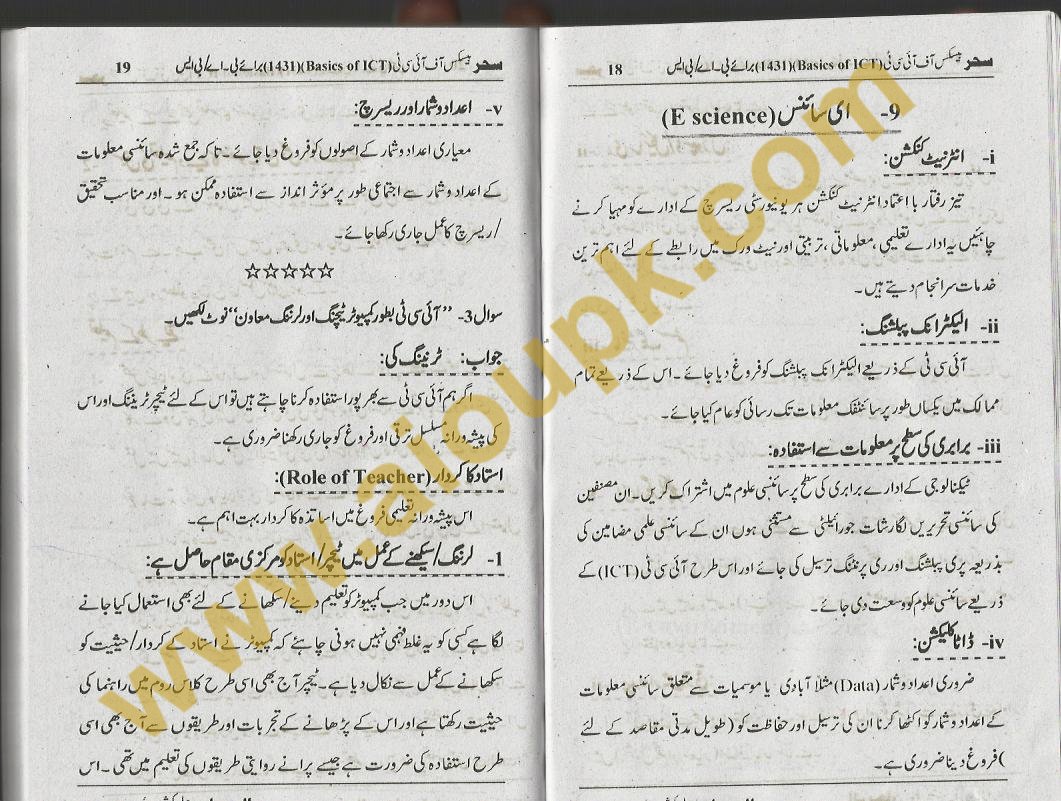 سحر بیسکس آف آئی سی ٹی (Basics of ICT)(1431) برائے بی۔اے/بی ایس 18
9- ای سائنس (E science)
i- انٹرنیٹ کنکشن:
تیز رفتار با اعتماد انٹرنیٹ کنکشن ہر یونیورسٹی ریسرچ کے ادارے کو مہیا کرنے
چاہئیں یہ ادارے تعلیمی، معلوماتی، تربیتی اور نیٹ ورک میں رابطے کے لئے اہم ترین
خدمات سرانجام دیتے ہیں۔
ii- الیکٹرانک پبلشنگ:
آئی سی ٹی کے ذریعے الیکٹرانک پبلشنگ کو فروغ دیا جائے۔ اس کے ذریعے تمام
ممالک میں یکساں طور پر سائنٹفک معلومات تک رسائی کو عام کیا جائے۔
iii- برابری کی سطح پر معلومات سے استفادہ:
ٹیکنالوجی کے ادارے برابری کی سطح پر سائنسی علوم میں اشتراک کریں۔ ان مصنفین
کی سائنسی تحریریں نگارشات جو رائیلٹی سے مستثنٰی ہوں ان کے سائنسی علمی مضامین کی
بذریعہ پری پبلشنگ اور ری پرنٹنگ ترسیل کی جائے اور اس طرح آئی سی ٹی (ICT) کے
ذریعہ سائنسی علوم کو وسعت دی جائے۔
iv- ڈاٹا کلیکشن:
ضروری اعداد و شمار (Data) مثلاً آبادی یا موسمیات سے متعلق سائنسی معلومات
کے اعداد و شمار کو اکٹھا کرنا ان کی ترسیل اور حفاظت کو (طویل مدتی مقاصد کے لئے
) فروغ دینا ضروری ہے۔
سحر بیسکس آف آئی سی ٹی (Basics of ICT)(1431) برائے بی۔اے/بی ایس 19
v- اعداد و شمار اور ریسرچ:
معیاری اعداد و شمار کے اصولوں کو فروغ دیا جائے۔ تاکہ جمع شدہ سائنسی معلومات
کے اعداد و شمار سے اجتماعی طور پر مؤثر انداز سے استفادہ ممکن ہو۔ اور مناسب تحقیق
/ریسرچ کا عمل جاری رکھا جائے۔
☆☆☆☆☆
سوال 3- ”آئی سی ٹی بطور کمپیوٹر ٹیچنگ اور لرننگ معاون“ نوٹ لکھیں۔
جواب: ٹریننگ کی:
اگر ہم آئی سی ٹی سے بھرپور استفادہ کرنا چاہتے ہیں تو اس کے لئے ٹیچر ٹریننگ اور اس
کی پیشہ ورانہ مسلسل ترقی اور فروغ کو جاری رکھنا ضروری ہے۔
استاد کا کردار (Role of Teacher):
اس پیشہ ورانہ تعلیمی فروغ میں اساتذہ کا کردار بہت اہم ہے۔
1- لرننگ/سیکھنے کے عمل میں ٹیچر/استاد کو مرکزی مقام حاصل ہے:
اس دور میں جب کمپیوٹر کو تعلیم دینے/سکھانے کے لئے بھی استعمال کیا جانے
لگا ہے کسی کو یہ غلط فہمی نہیں ہونی چاہئے کہ کمپیوٹر نے استاد کے کردار/حیثیت کو
سکھانے کے عمل سے نکال دیا ہے۔ ٹیچر آج بھی اسی طرح کلاس روم میں راہنما کی
حیثیت رکھتا ہے اور اس کے پڑھانے کے تجربات اور طریقوں سے آج بھی اسی
طرح استفادہ کی ضرورت ہے جیسے پرانے روایتی طریقوں کی تعلیم میں تھی۔ اس
www.aioupk.com